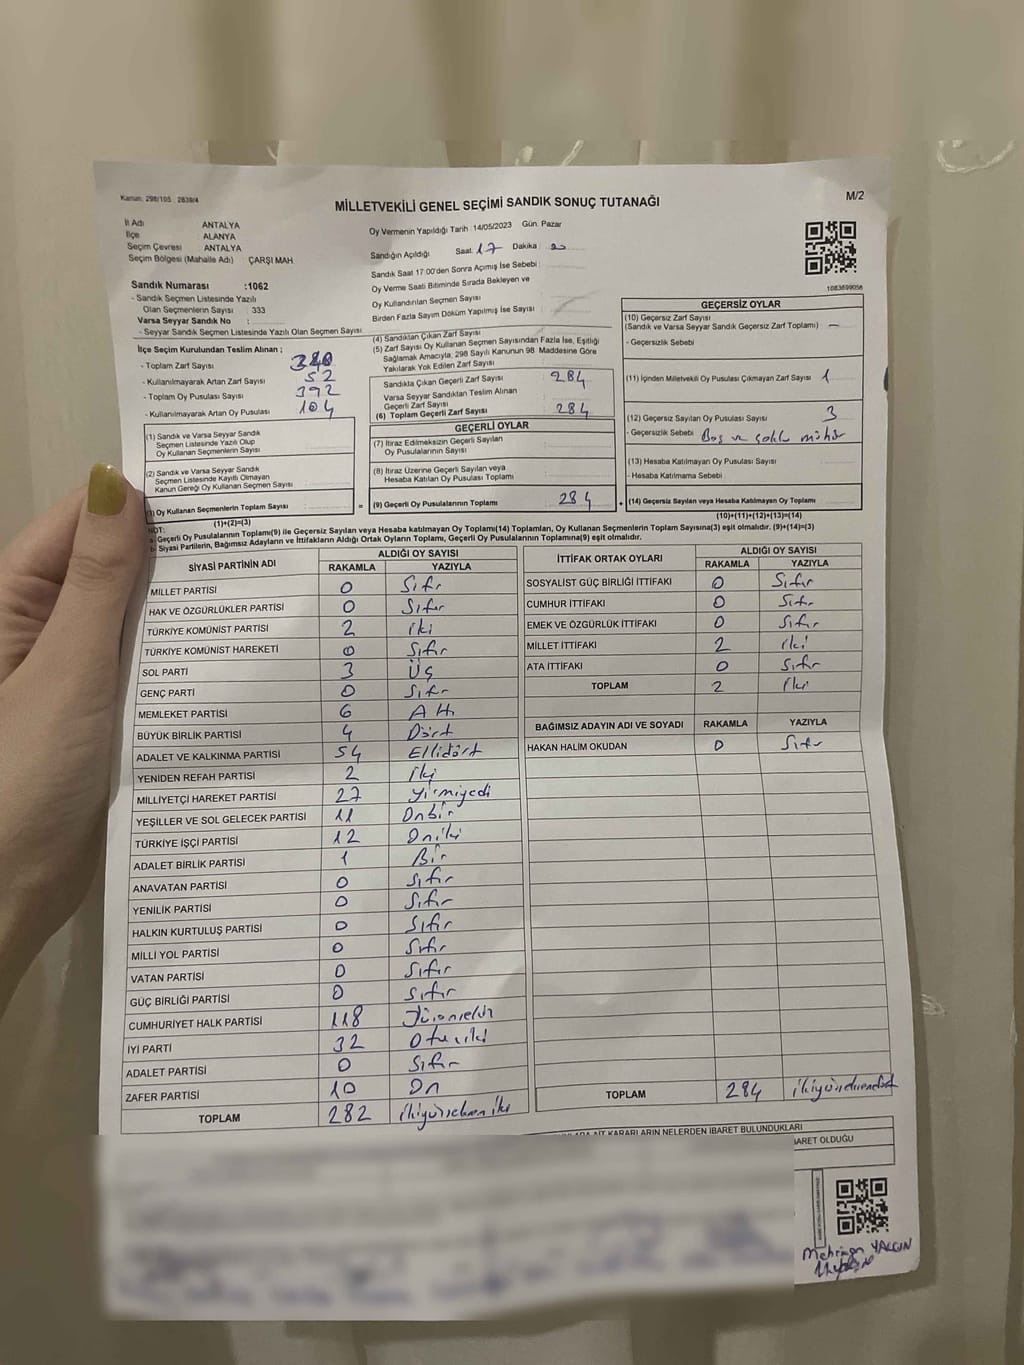 Kanun: 298/105 2839/4
MİLLETVEKİLİ GENEL SEÇİMİ SANDIK SONUÇ TUTANAĞI
M/2
İl Adı ANTALYA
İlçe ALANYA
Seçim Çevresi ANTALYA
Seçim Bölgesi (Mahalle Adı) ÇARŞI MAH
Oy Vermenin Yapıldığı Tarih 14/05/2023 Gün Pazar
Sandığın Açıldığı Saat: 17 Dakika
Sandık Saat 17:00'den Sonra Açmış İse Sebebi :
Oy Verme Saati Bitiminde Sırada Bekleyen ve
Oy Kullandırılan Seçmen Sayısı
Birden Fazla Sayım Döküm Yapılmış İse Sayısı :
1083699056
Sandık Numarası :1062
- Sandık Seçmen Listesinde Yazılı
Olan Seçmenlerin Sayısı : 333
Varsa Seyyar Sandık No :
- Seyyar Sandık Seçmen Listesinde Yazılı Olan Seçmen Sayısı
İlçe Seçim Kurulundan Teslim Alınan ;
- Toplam Zarf Sayısı
- Kullanılmayarak Artan Zarf Sayısı 52
- Toplam Oy Pusulası Sayısı 392
- Kullanılmayarak Artan Oy Pusulası 104
(1) Sandık ve Varsa Seyyar Sandık
Seçmen Listesinde Yazılı Olup
Oy Kullanan Seçmenlerin Sayısı
(2) Sandık ve Varsa Seyyar Sandık
Seçmen Listesinde Kayıtlı Olmayan
Kanun Gereği Oy Kullanan Seçmen Sayısı
(3) Oy Kullanan Seçmenlerin Toplam Sayısı
(1)+(2)=(3)
(4) Sandıktan Çıkan Zarf Sayısı
(5) Zarf Sayısı Oy Kullanan Seçmen Sayısından Fazla İse, Eşitliği
Sağlamak Amacıyla, 298 Sayılı Kanunun 98. Maddesine Göre
Yakılarak Yok Edilen Zarf Sayısı
Sandıkla Çıkan Geçerli Zarf Sayısı 284
Varsa Seyyar Sandıktan Teslim Alınan
Geçerli Zarf Sayısı
(6) Toplam Geçerli Zarf Sayısı 284
GEÇERLİ OYLAR
(7) İtiraz Edilmeksizin Geçerli Sayılan
Oy Pusulalarının Sayısı
(8) İtiraz Üzerine Geçerli Sayılan veya
Hesaba Katılan Oy Pusulası Toplamı
= (9) Geçerli Oy Pusulalarının Toplamı 284 +
GEÇERSİZ OYLAR
(10) Geçersiz Zarf Sayısı
(Sandık ve Varsa Seyyar Sandık Geçersiz Zarf Toplamı) —
- Geçersizlik Sebebi
(11) İçinden Milletvekili Oy Pusulası Çıkmayan Zarf Sayısı 1
(12) Geçersiz Sayılan Oy Pusulası Sayısı 3
- Geçersizlik Sebebi Boş ve mühür
(13) Hesaba Katılmayan Oy Pusulası Sayısı
- Hesaba Katılmama Sebebi
(14) Geçersiz Sayılan veya Hesaba Katılmayan Oy Pusulası Toplamı
(10)+(11)+(12)+(13)=(14)
NOT:
a- Geçerli Oy Pusulalarının Toplamı(9) ile Geçersiz Sayılan veya Hesaba katılmayan Oy Toplamı(14) Toplamları, Oy Kullanan Seçmenlerin Toplam Sayısına(3) eşit olmalıdır. (9)+(14)=(3)
b- Siyasi Partilerin, Bağımsız Adayların ve İttifakların Aldığı Ortak Oyların Toplamı, Geçerli Oy Pusulalarının Toplamına(9) eşit olmalıdır.
SİYASİ PARTİNİN ADI ALDIĞI OY SAYISI
RAKAMLA YAZIYLA
MİLLET PARTİSİ 0 Sıfır
HAK VE ÖZGÜRLÜKLER PARTİSİ 0 Sıfır
TÜRKİYE KOMÜNİST PARTİSİ 2 iki
TÜRKİYE KOMÜNİST HAREKETİ 0 Sıfır
SOL PARTİ 3 Üç
GENÇ PARTİ 0 Sıfır
MEMLEKET PARTİSİ 6 Altı
BÜYÜK BİRLİK PARTİSİ 4 Dört
ADALET VE KALKINMA PARTİSİ 54 Ellidört
YENİDEN REFAH PARTİSİ 2 iki
MİLLİYETÇİ HAREKET PARTİSİ 27 yirmiyedi
YEŞİLLER VE SOL GELECEK PARTİSİ 11 Onbir
TÜRKİYE İŞÇİ PARTİSİ 12 Oniki
ADALET BİRLİK PARTİSİ 1 Bir
ANAVATAN PARTİSİ 0 Sıfır
YENİLİK PARTİSİ 0 Sıfır
HALKIN KURTULUŞ PARTİSİ 0 Sıfır
MİLLİ YOL PARTİSİ 0 Sıfır
VATAN PARTİSİ 0 Sıfır
GÜÇ BİRLİĞİ PARTİSİ 0 Sıfır
CUMHURİYET HALK PARTİSİ 118 Yüzonsekiz
İYİ PARTİ 32 Otuziki
ADALET PARTİSİ 0 Sıfır
ZAFER PARTİSİ 10 On
TOPLAM 282 ikiyüzseksen iki
İTTİFAK ORTAK OYLARI ALDIĞI OY SAYISI
RAKAMLA YAZIYLA
SOSYALİST GÜÇ BİRLİĞİ İTTİFAKI 0 Sıfır
CUMHUR İTTİFAKI 0 Sıfır
EMEK VE ÖZGÜRLÜK İTTİFAKI 0 Sıfır
MİLLET İTTİFAKI 2 iki
ATA İTTİFAKI 0 Sıfır
TOPLAM 2 iki
BAĞIMSIZ ADAYIN ADI VE SOYADI RAKAMLA YAZIYLA
HAKAN HALIM OKUDAN 0 Sıfır
TOPLAM 284 ikiyüzseksendört
AİT KARARLARIN NELERDEN İBARET BULUNDUKLARI
BARET OLDUĞU
YALÇIN